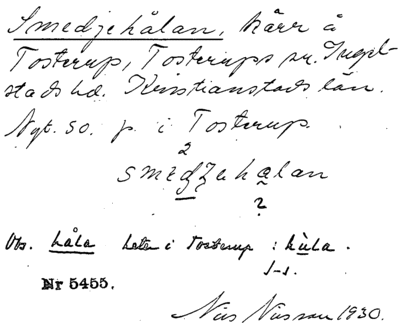 Smedjehålan, kärr å
Tosterup, Tosterups sn. Ingel-
stads hd. Kristianstads län.
Nyt. so. p. i Tosterup.
2
smedʒehalan
?
Obs. håla heter i Tosterup : hùla.
s-s.
Nr 5455.
Nils Nilsson 1930.